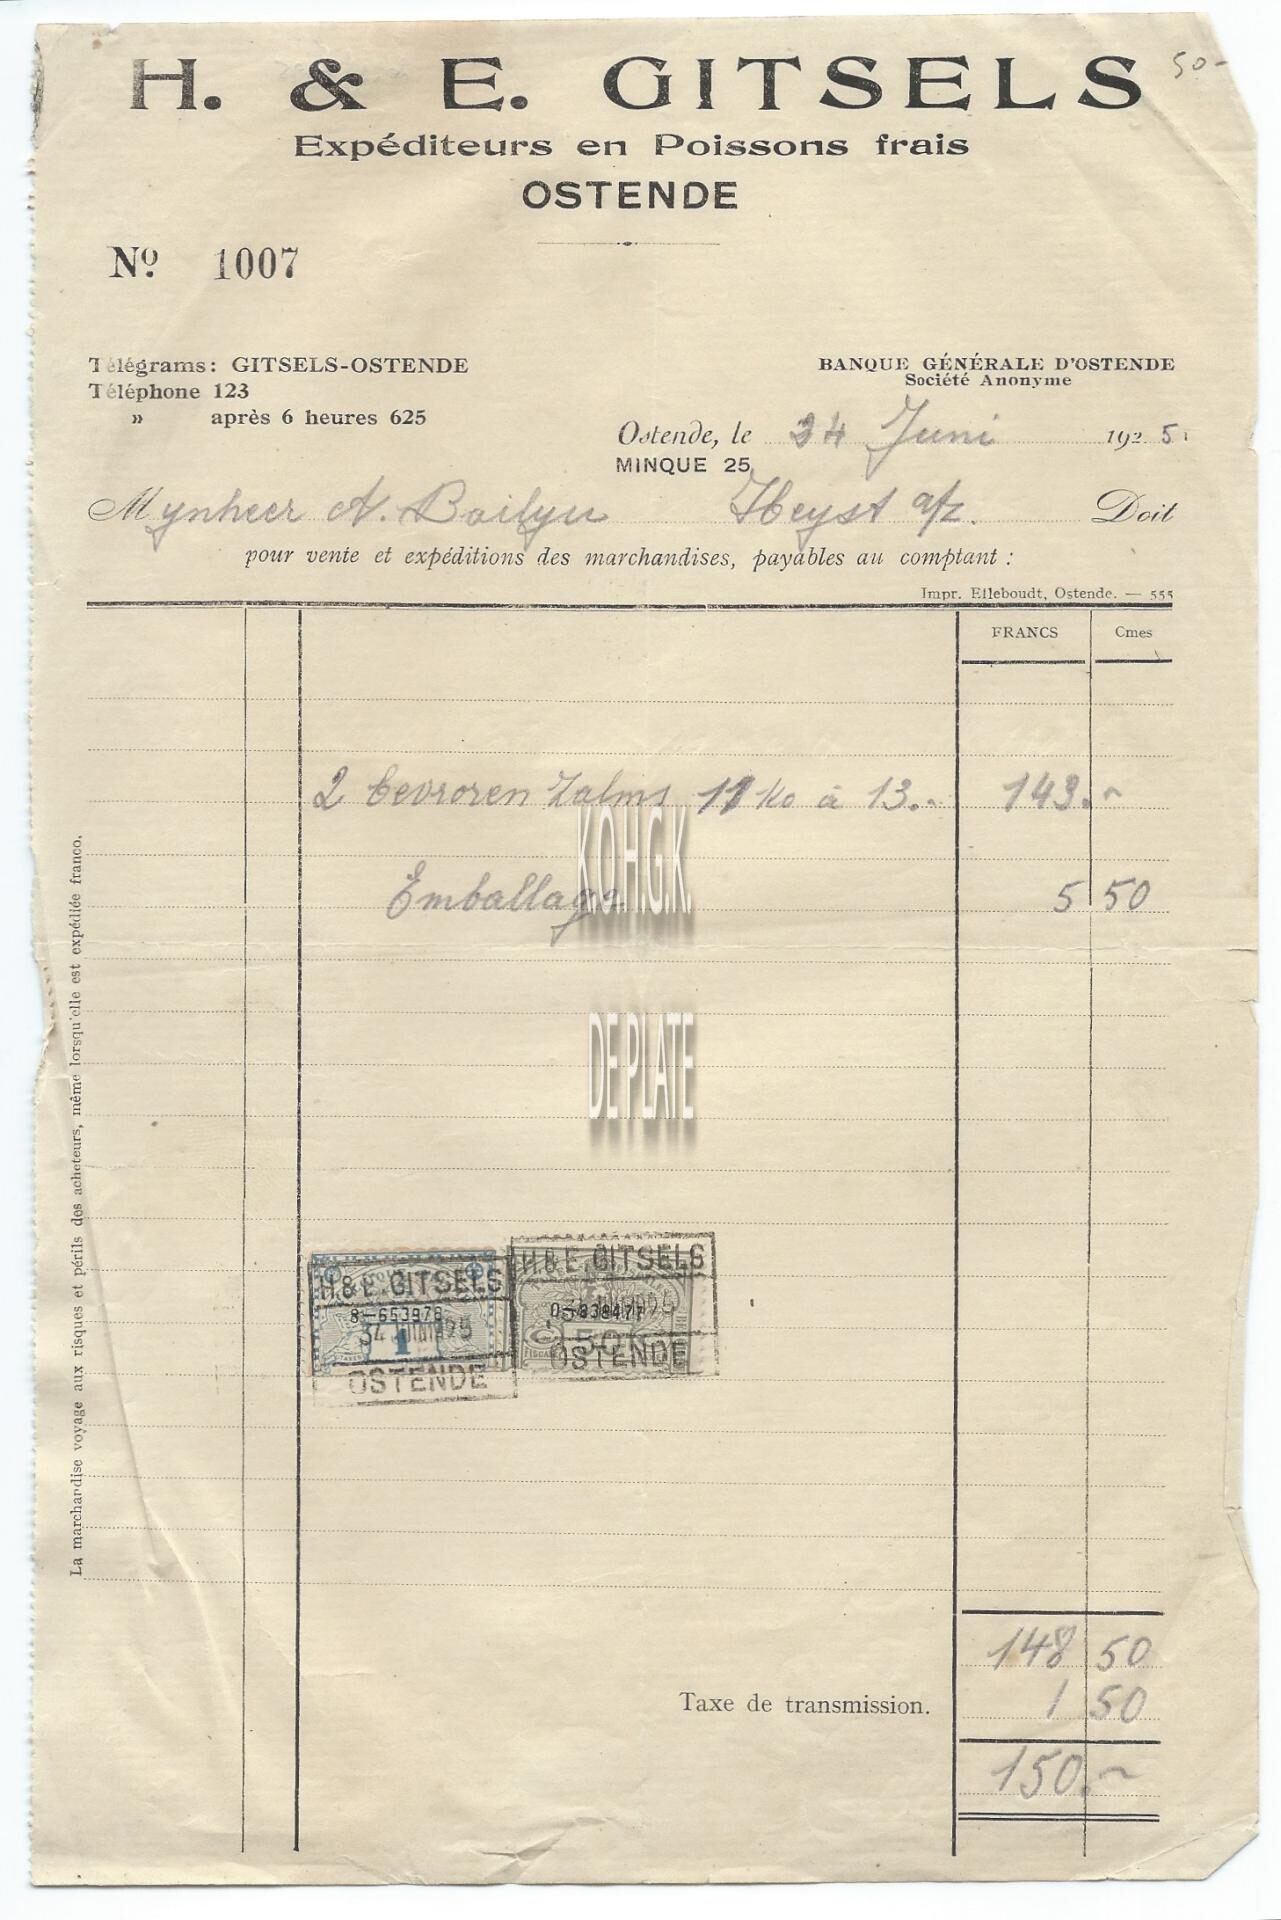 H. & E. GITSELS
50-
Expéditeurs en Poissons frais
OSTENDE
Nº 1007
Télégrams: GITSELS-OSTENDE
Téléphone 123
» après 6 heures 625
BANQUE GÉNÉRALE D'OSTENDE
Société Anonyme
Ostende, le 24 Juni 1925
MINQUE 25
Mynheer A. Bailyu Heyst a/z. Doit
pour vente et expéditions des marchandises, payables au comptant :
Impr. Elleboudt, Ostende. — 555
FRANCS Cmes
2 bevroren Zalms 11 Ko à 13.- 143.-
Emballage 5 50
K.O.H.G.K.
DE PLATE
La marchandise voyage aux risques et périls des acheteurs, même lorsqu'elle est expédiée franco.
H. & E. GITSELS
8-653978
1
OSTENDE
H. & E. GITSELS
50
OSTENDE
148 50
Taxe de transmission. 1 50
150.-